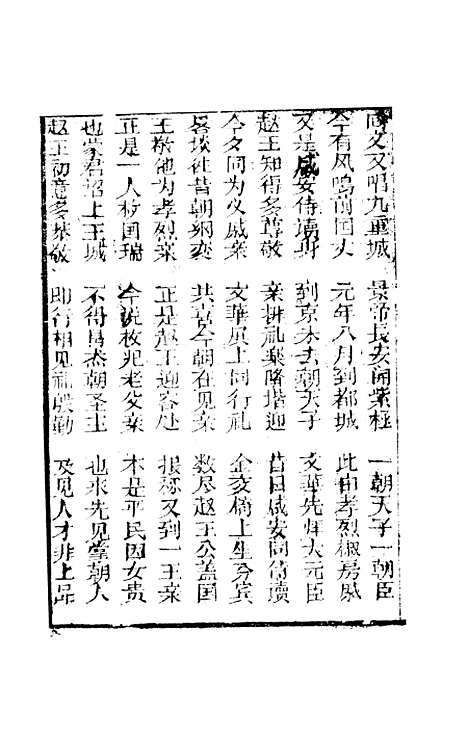 同文又唱九重城 景帝長安闹紫極 一朝天子一朝臣
今有风鸣前国丈 元年八月到都城 此由孝烈椒房戚
又是咸安侍讀 到京未去朝天子 文華先拜大元臣
赵王知得多尊敬 亲排礼乐降堦迎 昔日咸安同侍讀
今夕同为义戚亲 文華殿上同行礼 金交椅上坐分宾
各谈徃昔朝纲变 共喜今朝在见亲 数尽赵王公盖国
王敬他为孝烈亲 正是赵王迎客处 报称又到一王亲
正是一人称国瑞 今说救兆老父亲 本是平民因女贵
也蒙君招上王城 不得昌杰朝圣主 也来先见掌朝人
赵王初意多恭敬 即行相见礼殷勤 及见人才非上品